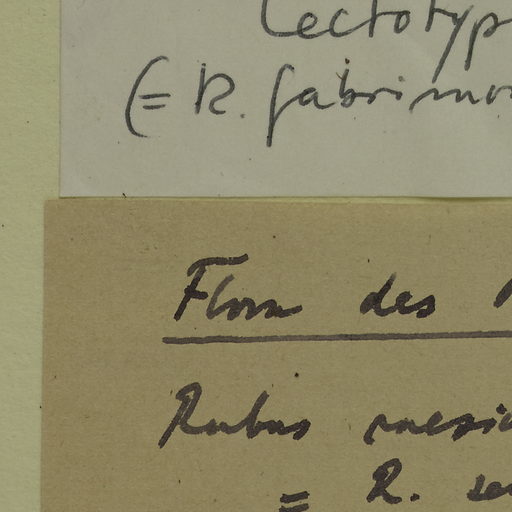 Lectotyp
(= R. gabrimon
Flora des
Rubus
= R. se